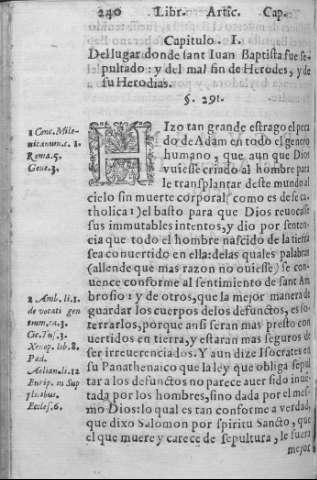 240 Libr. Artic. Cap.
Capitulo. I.
Del lugar donde sant Iuan Baptista fue se-
pultado: y del mal fin de Herodes, y de
su Herodias.
§. 291.
HIzo tan grande estrago el peca
do de Adam en todo el genero
humano, que aun que Dios
vuiesse criado al hombre para
le transplantar deste mundo al
cielo sin muerte corporal, como es de se ca-
tholica 1) el basto para que Dios reuocasse
sus immutables intentos, y dio por senten-
cia que todo el hombre nascido de la tierra
sea conuertido en ella: delas quales palabras
(allende que mas razon no ouiesse) se con-
uence conforme al sentimiento de sant Am
brosio 2 y de otros, que la mejor manera de
guardar los cuerpos delos defunctos, es so-
terrarlos, porque ansi seran mas presto con
uertidos en tierra, y estaran mas seguros de
ser irreuerenciados. Y aun dize Isocrates en
su Panathenaico que la ley que obliga sepul
tar a los defunctos no parece auer sido inuē
tada por los hombres, sino dada por el mes-
mo Dios: lo qual es tan conforme a verdad,
que dixo Salomon por spiritu Sancto, que
el que muere y carece de sepultura, le fuera
mejor
1 Conc. Mile-
uitanum. c. 1.
Roma. 5.
Gene. 3.
2 Amb. li. 1.
de vocati gen
tium, ca. 3.
Cic. Tus. 3.
Xenop. lib. 8.
Pad.
Aelian. li. 12
Eurip. in Sup
plicibus.
Eccles. 6.